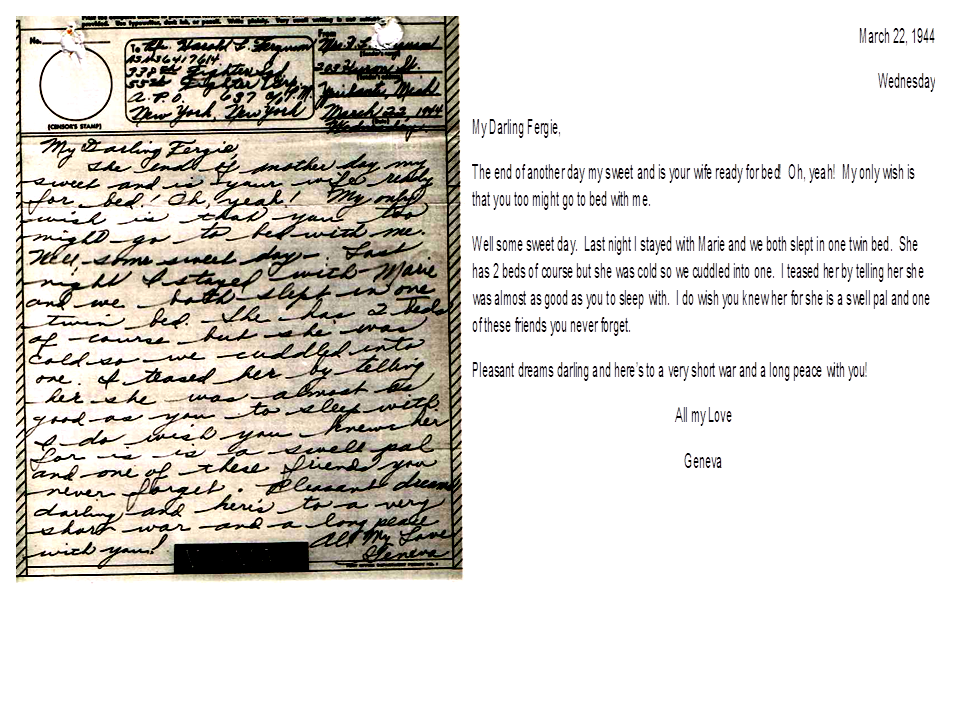 provided. Use typewriter, dark ink, or pencil. Write plainly. Very small writing is not suitable.
No.
To
From
Harold L. Ferguson
Fighter Sqd.
55th Fighter Grp.
A.P.O. 637
New York, New York
Mich
March 22, 1944
Wednesday
(CENSOR'S STAMP)
My Darling Fergie,
The end of another day my
sweet and is your wife ready
for bed! Oh, yeah! My only
wish is that you too
might go to bed with me.
Well some sweet day. Last
night I stayed with Marie
and we both slept in one
twin bed. She has 2 beds
of course but she was
cold so we cuddled into
one. I teased her by telling
her she was almost as
good as you to sleep with.
I do wish you knew her
for is is a swell pal
and one of these friend you
never forget. Pleasant dreams
darling and here's to a very
short war and a long peace
with you!
All My Love
Geneva
March 22, 1944
Wednesday
My Darling Fergie,
The end of another day my sweet and is your wife ready for bed! Oh, yeah! My only wish is
that you too might go to bed with me.
Well some sweet day. Last night I stayed with Marie and we both slept in one twin bed. She
has 2 beds of course but she was cold so we cuddled into one. I teased her by telling her she
was almost as good as you to sleep with. I do wish you knew her for she is a swell pal and one
of these friends you never forget.
Pleasant dreams darling and here's to a very short war and a long peace with you!
All my Love
Geneva